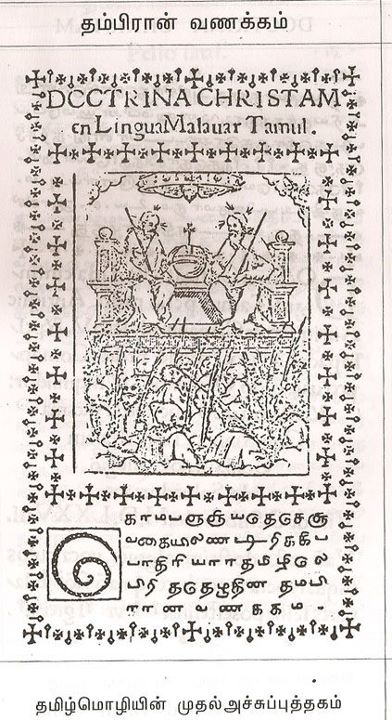 தம்பிரான் வணக்கம்
DCCTRINA CHRISTAM
en Lingua Malauar Tamul.
கொமபஞஞி
வகையிலண
பாதிரியார தமிழிலெ
தமபி
ரான வணககம
தமிழ்மொழியின் முதல்அச்சுப்புத்தகம்